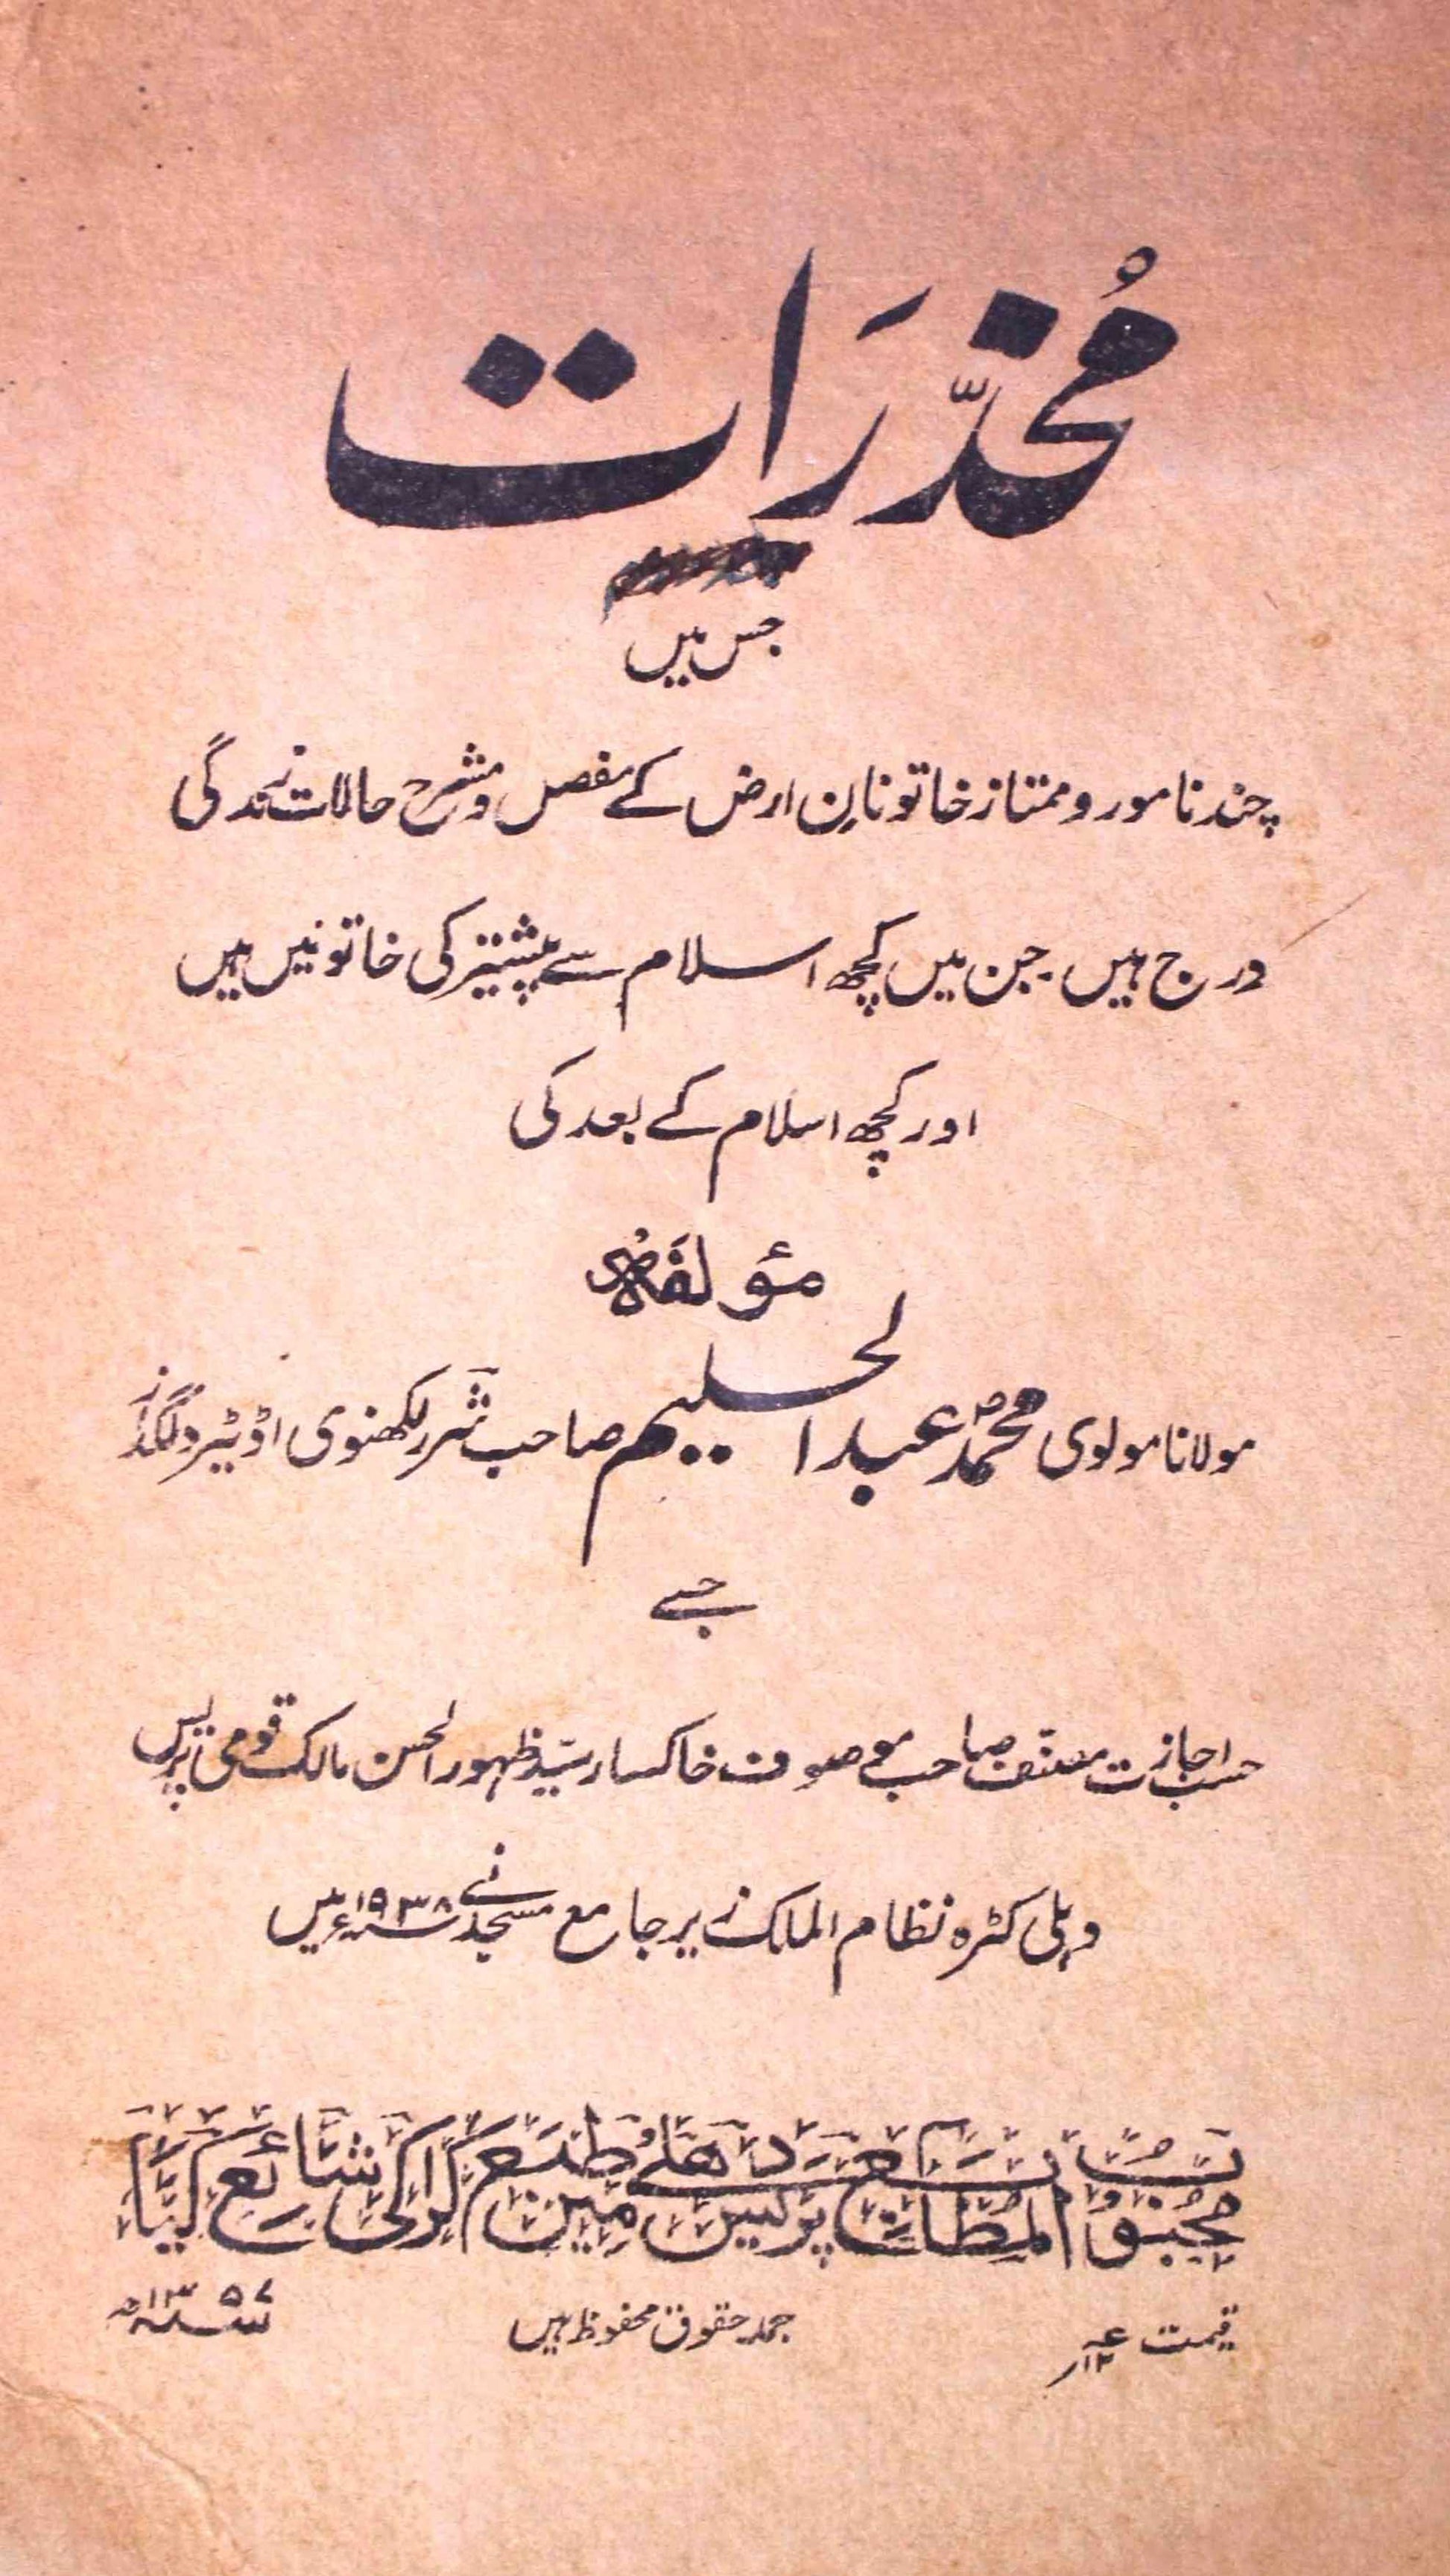 مُخدَّرَات
جس میں
چند نامور و ممتاز خاتونانِ ارض کے مفصل و مشرح حالات زندگی
درج ہیں۔ جن میں کچھ اسلام سے پیشتر کی خاتونیں ہیں
اور کچھ اسلام کے بعد کی
مؤلفہٗ
مولانا مولوی محمدؐ عبدالحلیم صاحب شرر لکھنوی اڈیٹر دلگداز
جسے
حسب اجازت مصنّف صاحب موصوف خاکسار سیّد ظہور الحسن مالک قومی پریس
دہلی کٹرہ نظام الملک زیر جامع مسجد نے ۱۹۳۸ء میں
محبوب المطابع پریس دہلی میں طبع کراکی شائع کیا
قیمت ۱۲؍ جملہ حقوق محفوظ ہیں ۱۳۵۷ھ